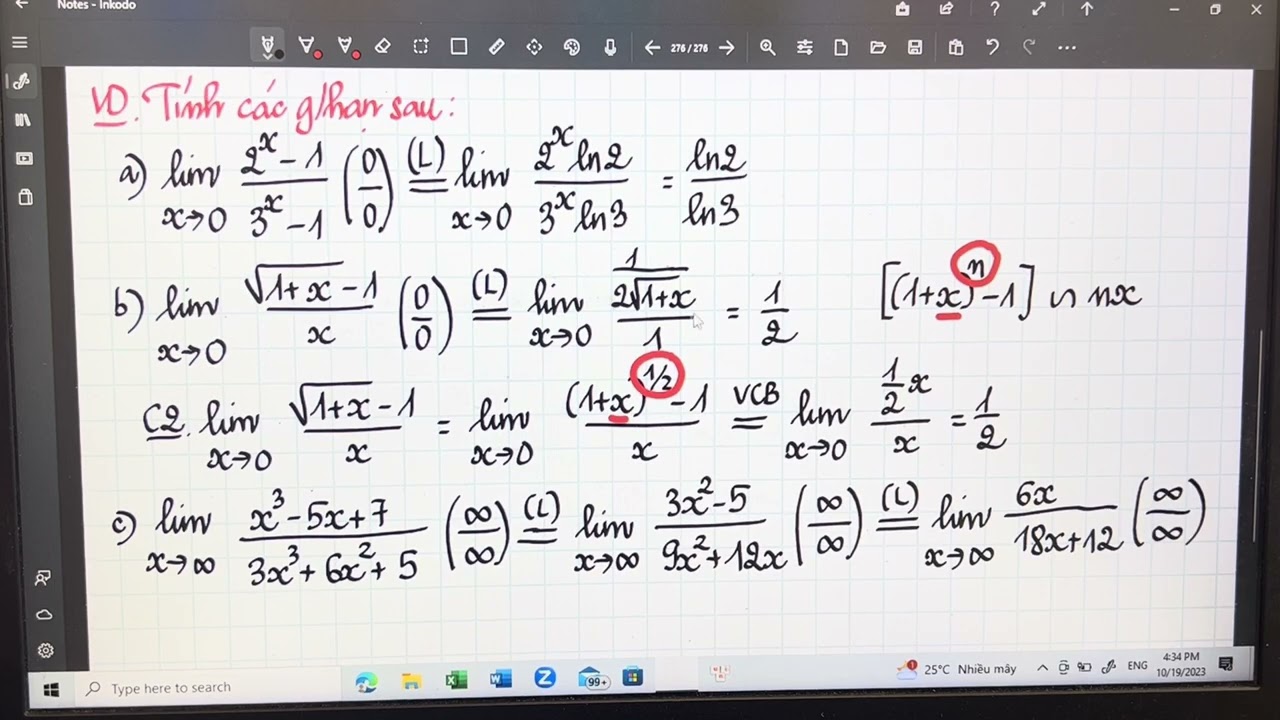 Notes - Inkodo
276 / 276
VD. Tính các g/hạn sau:
a) lim x→0 (2^x - 1)/(3^x - 1) (0/0) (L)= lim x→0 (2^x ln2)/(3^x ln3) = ln2/ln3
b) lim x→0 (√(1+x) - 1)/x (0/0) (L)= lim x→0 (1/(2√(1+x)))/1 = 1/2 [(1+x)^n - 1] ∽ nx
C2. lim x→0 (√(1+x) - 1)/x = lim x→0 ((1+x)^(1/2) - 1)/x VCB= lim x→0 (1/2 x)/x = 1/2
c) lim x→∞ (x^3 - 5x + 7)/(3x^3 + 6x^2 + 5) (∞/∞) (L)= lim x→∞ (3x^2 - 5)/(9x^2 + 12x) (∞/∞) (L)= lim x→∞ 6x/(18x + 12) (∞/∞)
Type here to search
99+
1
25°C Nhiều mây
ENG
4:34 PM
10/19/2023